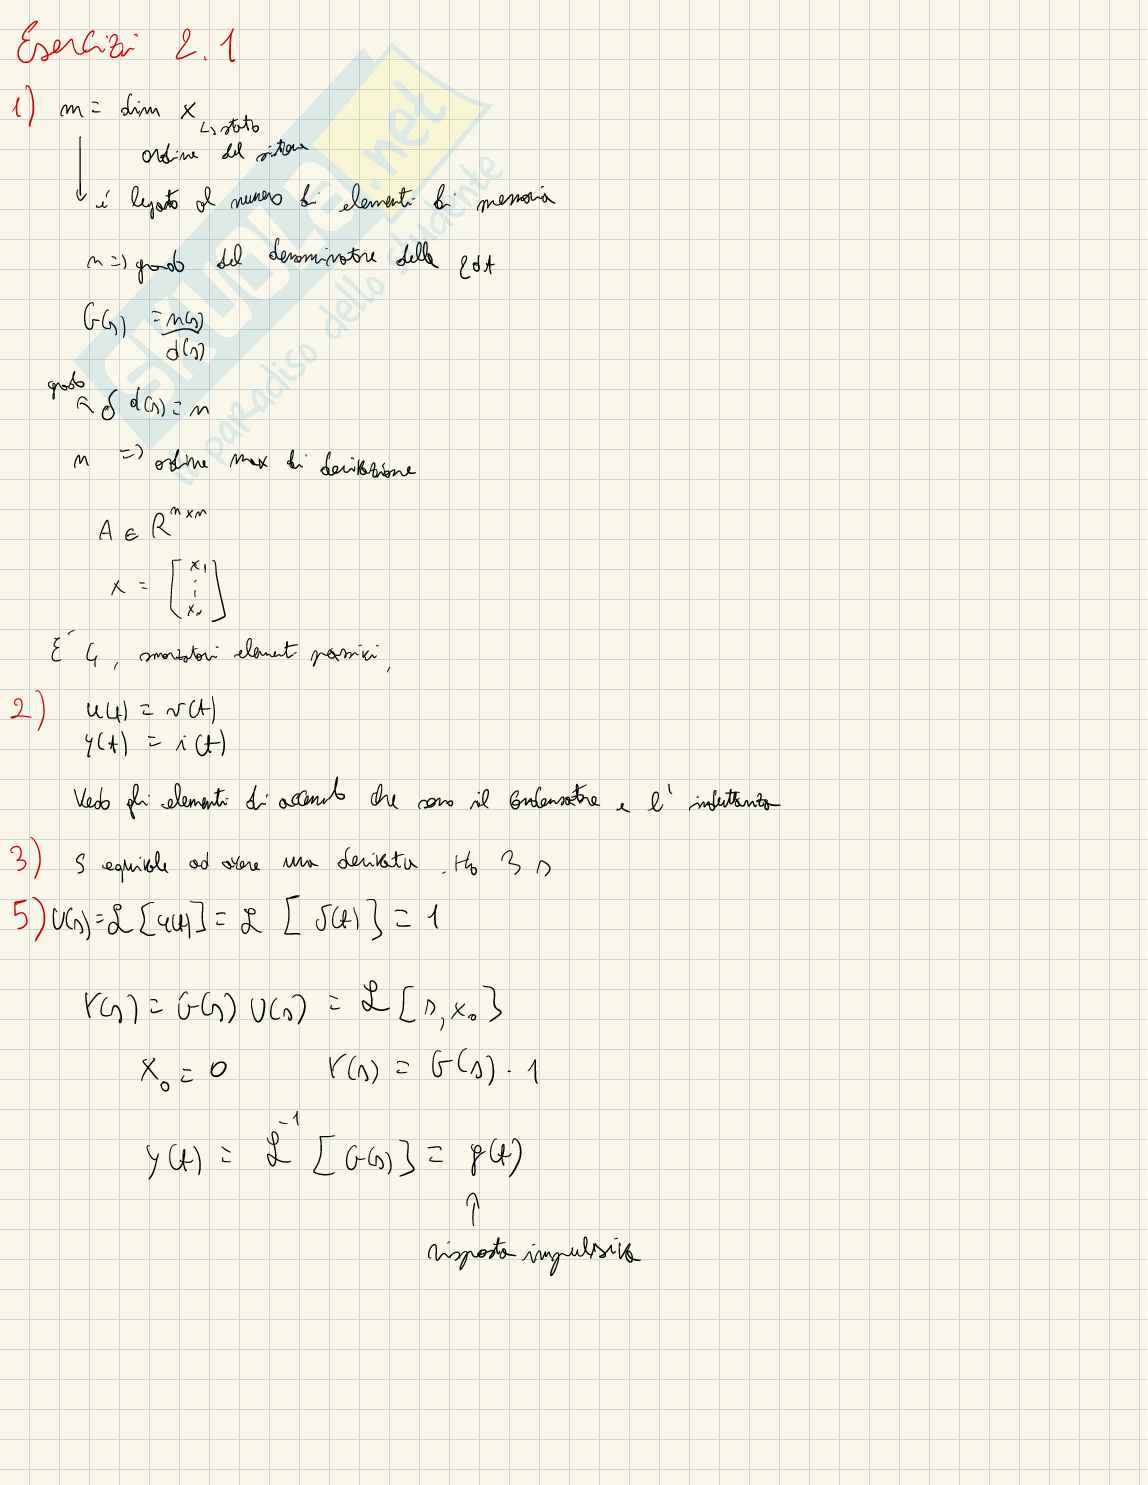 Esercizi 2.1
1) n = dim x
↳ stato
ordine del sistema
↓ é legato al numero di elementi di memoria
n => grado del denominatore della fdt
G(s) = n(s)/d(s)
grado
δ d(s) = n
n => ordine max di derivazione
A ∈ R^{n×n}
x = [x_1 ⋮ x_n]
E' 4, smorzatori elementi passivi,
2) u(t) = v(t)
y(t) = i(t)
Vedo gli elementi di accumulo che sono il condensatore e l'induttanza
3) s equivale ad avere una derivata. Ho 3 s
5) U(s) = ℒ[u(t)] = ℒ[δ(t)] = 1
Y(s) = G(s) U(s) = ℒ[s, x_0]
x_0 = 0 Y(s) = G(s) · 1
y(t) = ℒ^{-1}[G(s)] = g(t)
↑
risposta impulsiva
SKUOLA.net
il paradiso dello studente